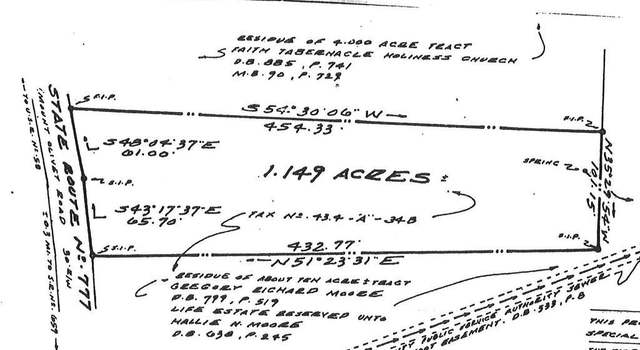 RESIDUE OF 4.000 ACRE TRACT
FAITH TABERNACLE HOLINESS CHURCH
D.B. 885, P. 741
M.B. 90, P. 729
S.I.P.
S 54° 30' 06" W
454.33'
S 48° 04' 37" E
61.00'
1.149 ACRES ±
SPRING
S.I.P.
S 43° 17' 37" E
65.70'
TAX No. 43.4-"A"-34B
S.I.P.
432.77'
N 51° 23' 31" E
STATE ROUTE No. 777
(MOUNT OLIVET ROAD 30' R/W
RESIDUE OF ABOUT TEN ACRE ± TRACT
GREGORY RICHARD MOORE
D.B. 799, P. 519
LIFE ESTATE RESERVED UNTO
HALLIE N. MOORE
D.B. 638, P. 245
PUBLIC SERVICE AUTHORITY SEWER
EASEMENT. D.B. 533, P. 8
THIS
SPECIAL